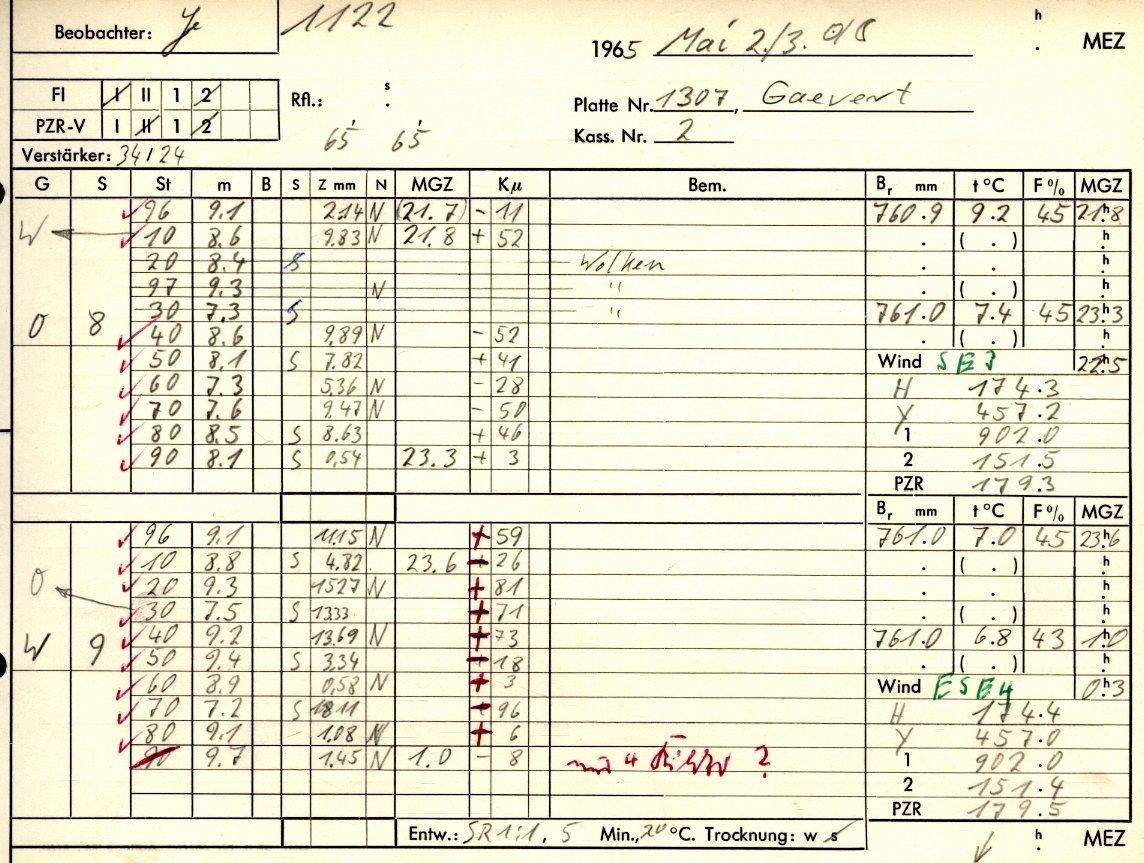 Beobachter: Je 1122 h
1965 Mai 2./3. . MEZ
FI I II 1 2 Rfl.: s .
PZR-V I II 1 2
Platte Nr. 1307, Gaevert
65' 65' Kass. Nr. 2
Verstärker: 34/24
G S St m B S Z mm N MGZ Kμ Bem. Br mm t °C F % MGZ
96 9.1 2.14 N (21.7) - 11 760.9 9.2 45 21h8
W 10 8.6 9.83 N 21.8 + 52 . ( . ) h.
20 8.4 S Wolken . . h.
97 9.3 N " . ( . ) h.
30 7.3 S " 761.0 7.4 45 23h3
O 8 40 8.6 9.89 N - 52 . ( . ) h.
50 8.1 S 7.82 + 41 Wind SE3 22h5
60 7.3 5.36 N - 28 H 174.3
70 7.6 9.47 N - 50 Y 457.2
80 8.5 S 8.63 + 46 1 902.0
90 8.1 S 0,54 23.3 + 3 2 151.5
PZR 179.3
Br mm t °C F % MGZ
96 9.1 11.15 N + 59 761.0 7.0 45 23h6
10 8.8 S 4.82 23.6 - 26 . ( . ) h.
O 20 9.3 15.27 N + 81 . . h.
30 7.5 S 13.33 + 71 . ( . ) h.
W 9 40 9.2 13.69 N + 73 761.0 6.8 43 1h0
50 9.4 S 3.34 - 18 . ( . ) h.
60 8.9 0,58 N + 3 Wind ESE4 0h3
70 7.2 S 18.11 + 96 H 174.4
80 9.1 1.08 N + 6 Y 457.0
90 9.7 1.45 N 1.0 - 8 nur 4 ? 1 902.0
2 151.4
PZR 179.5
Entw.: SR 1:1, 5 Min., 20 °C. Trocknung: w s h . MEZ